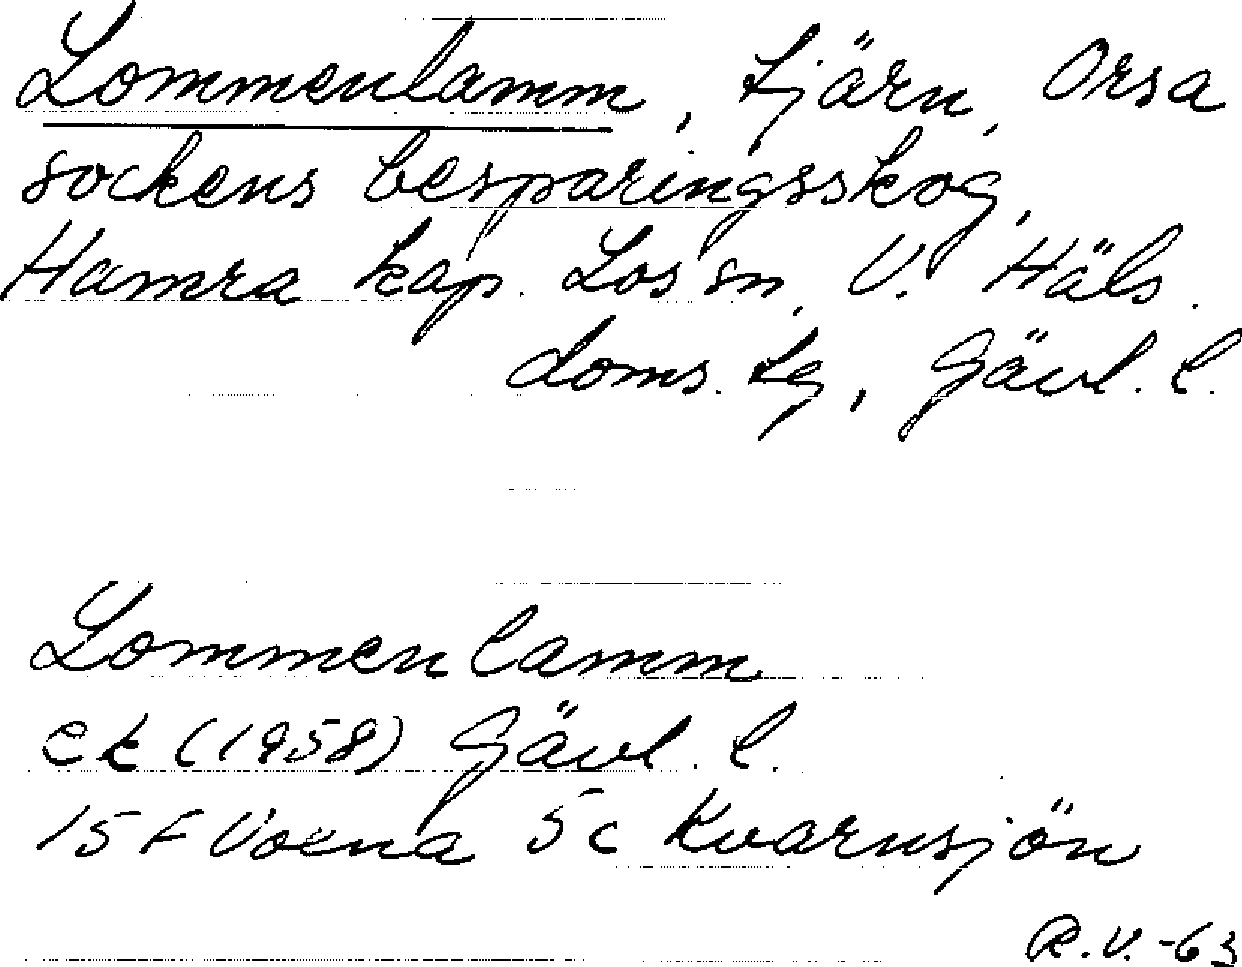 Lommenlamm, tjärn, Orsa
sockens besparingsskog,
Hamra kap. Los sn, V. Häls.
doms. tg, Gävl. l.
Lommenlamm
ek (1958) Gävl. l.
15 F Voxna 5c Kvarnsjön
R.V. -63